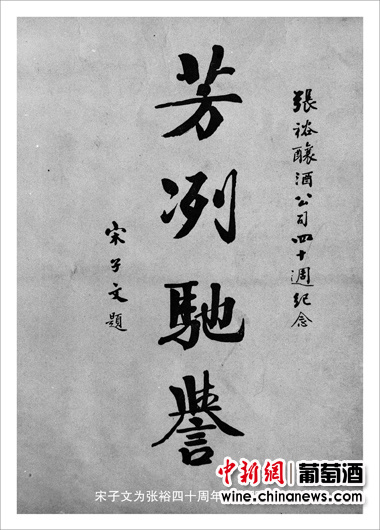 張裕釀酒公司四十週紀念
芳冽馳譽
宋子文題
宋子文为张裕四十周年
中新網 葡萄酒
wine.chinanews.com